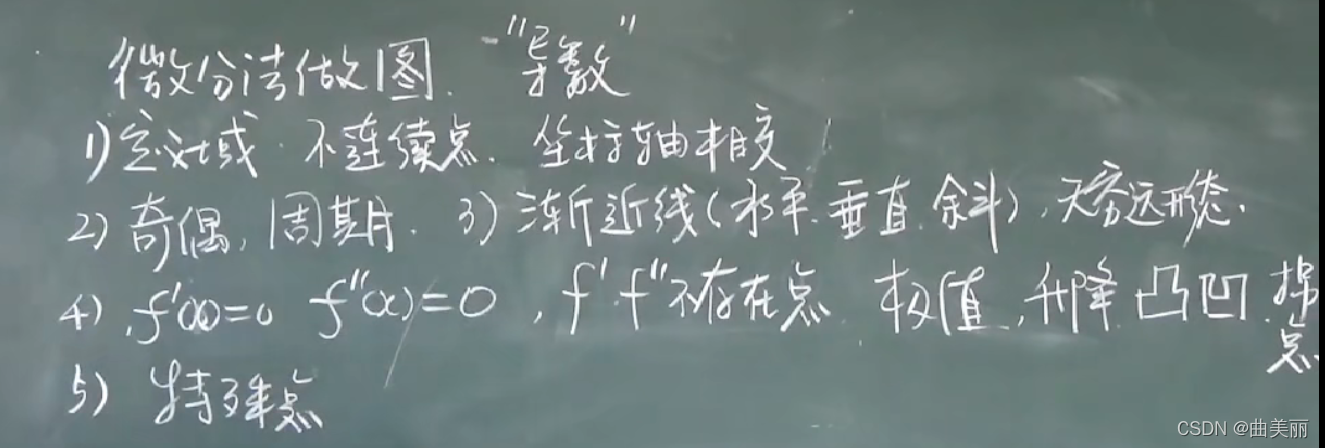 微分法做图. "导数"
1) 定义域. 不连续点. 坐标轴相交
2) 奇偶, 周期. 3) 渐近线(水平. 垂直. 余斗), 无穷远形态.
4) f'(x)=0 f''(x)=0, f' f''不存在点 极值, 升降 凸凹 拐点
5) 特殊点
CSDN @曲美丽